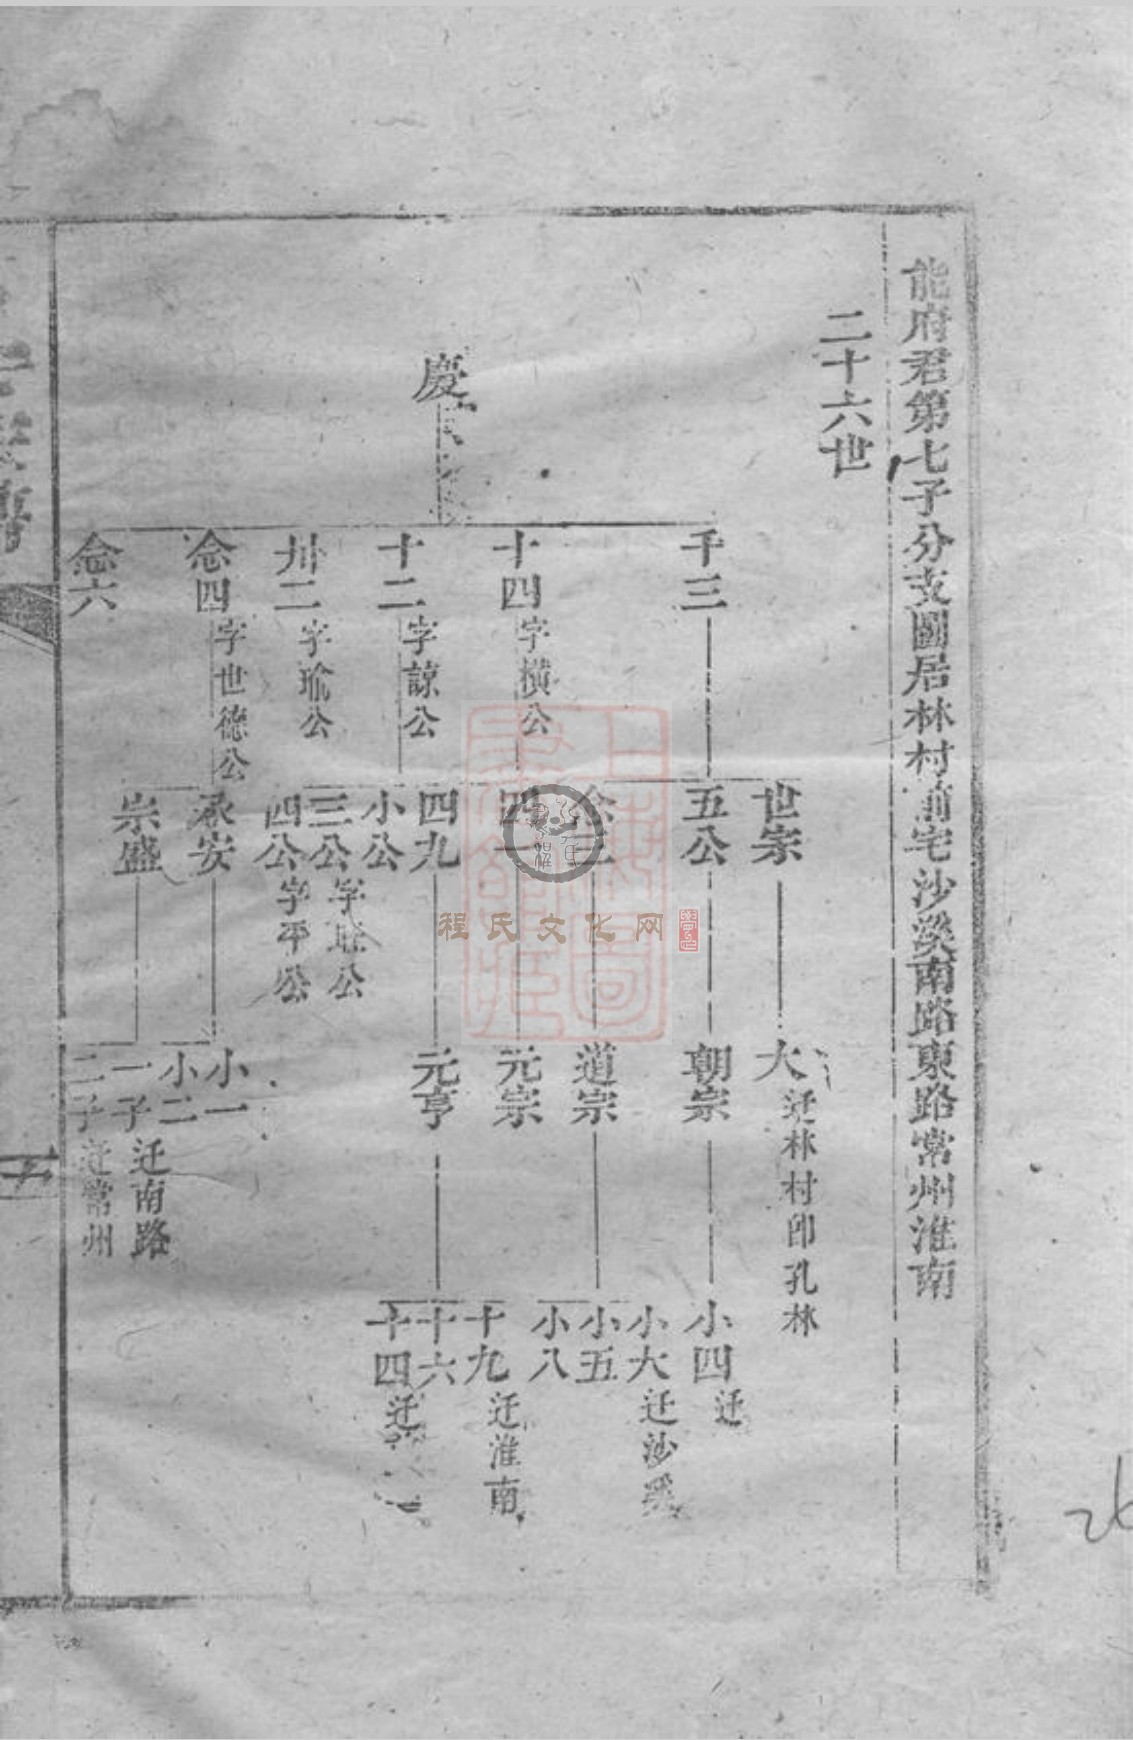 能府君第七子分支圖居林村前宅沙溪南路東路常州淮南
二十六世
慶
千三
十四字橫公
十二字諒公
卅二字瑜公
念四字世德公
念六
世宗
五公
念三
四一
四九
小公
三公字
四公字平公
承安
崇盛
大迁林村即孔林
朝宗
道宗
元宗
元亨
小一
小二
一子迁南路
二子迁常州
小四迁
小大迁沙溪
小五
小八
十九迁淮南
十六
十四迁
程氏文化网
26